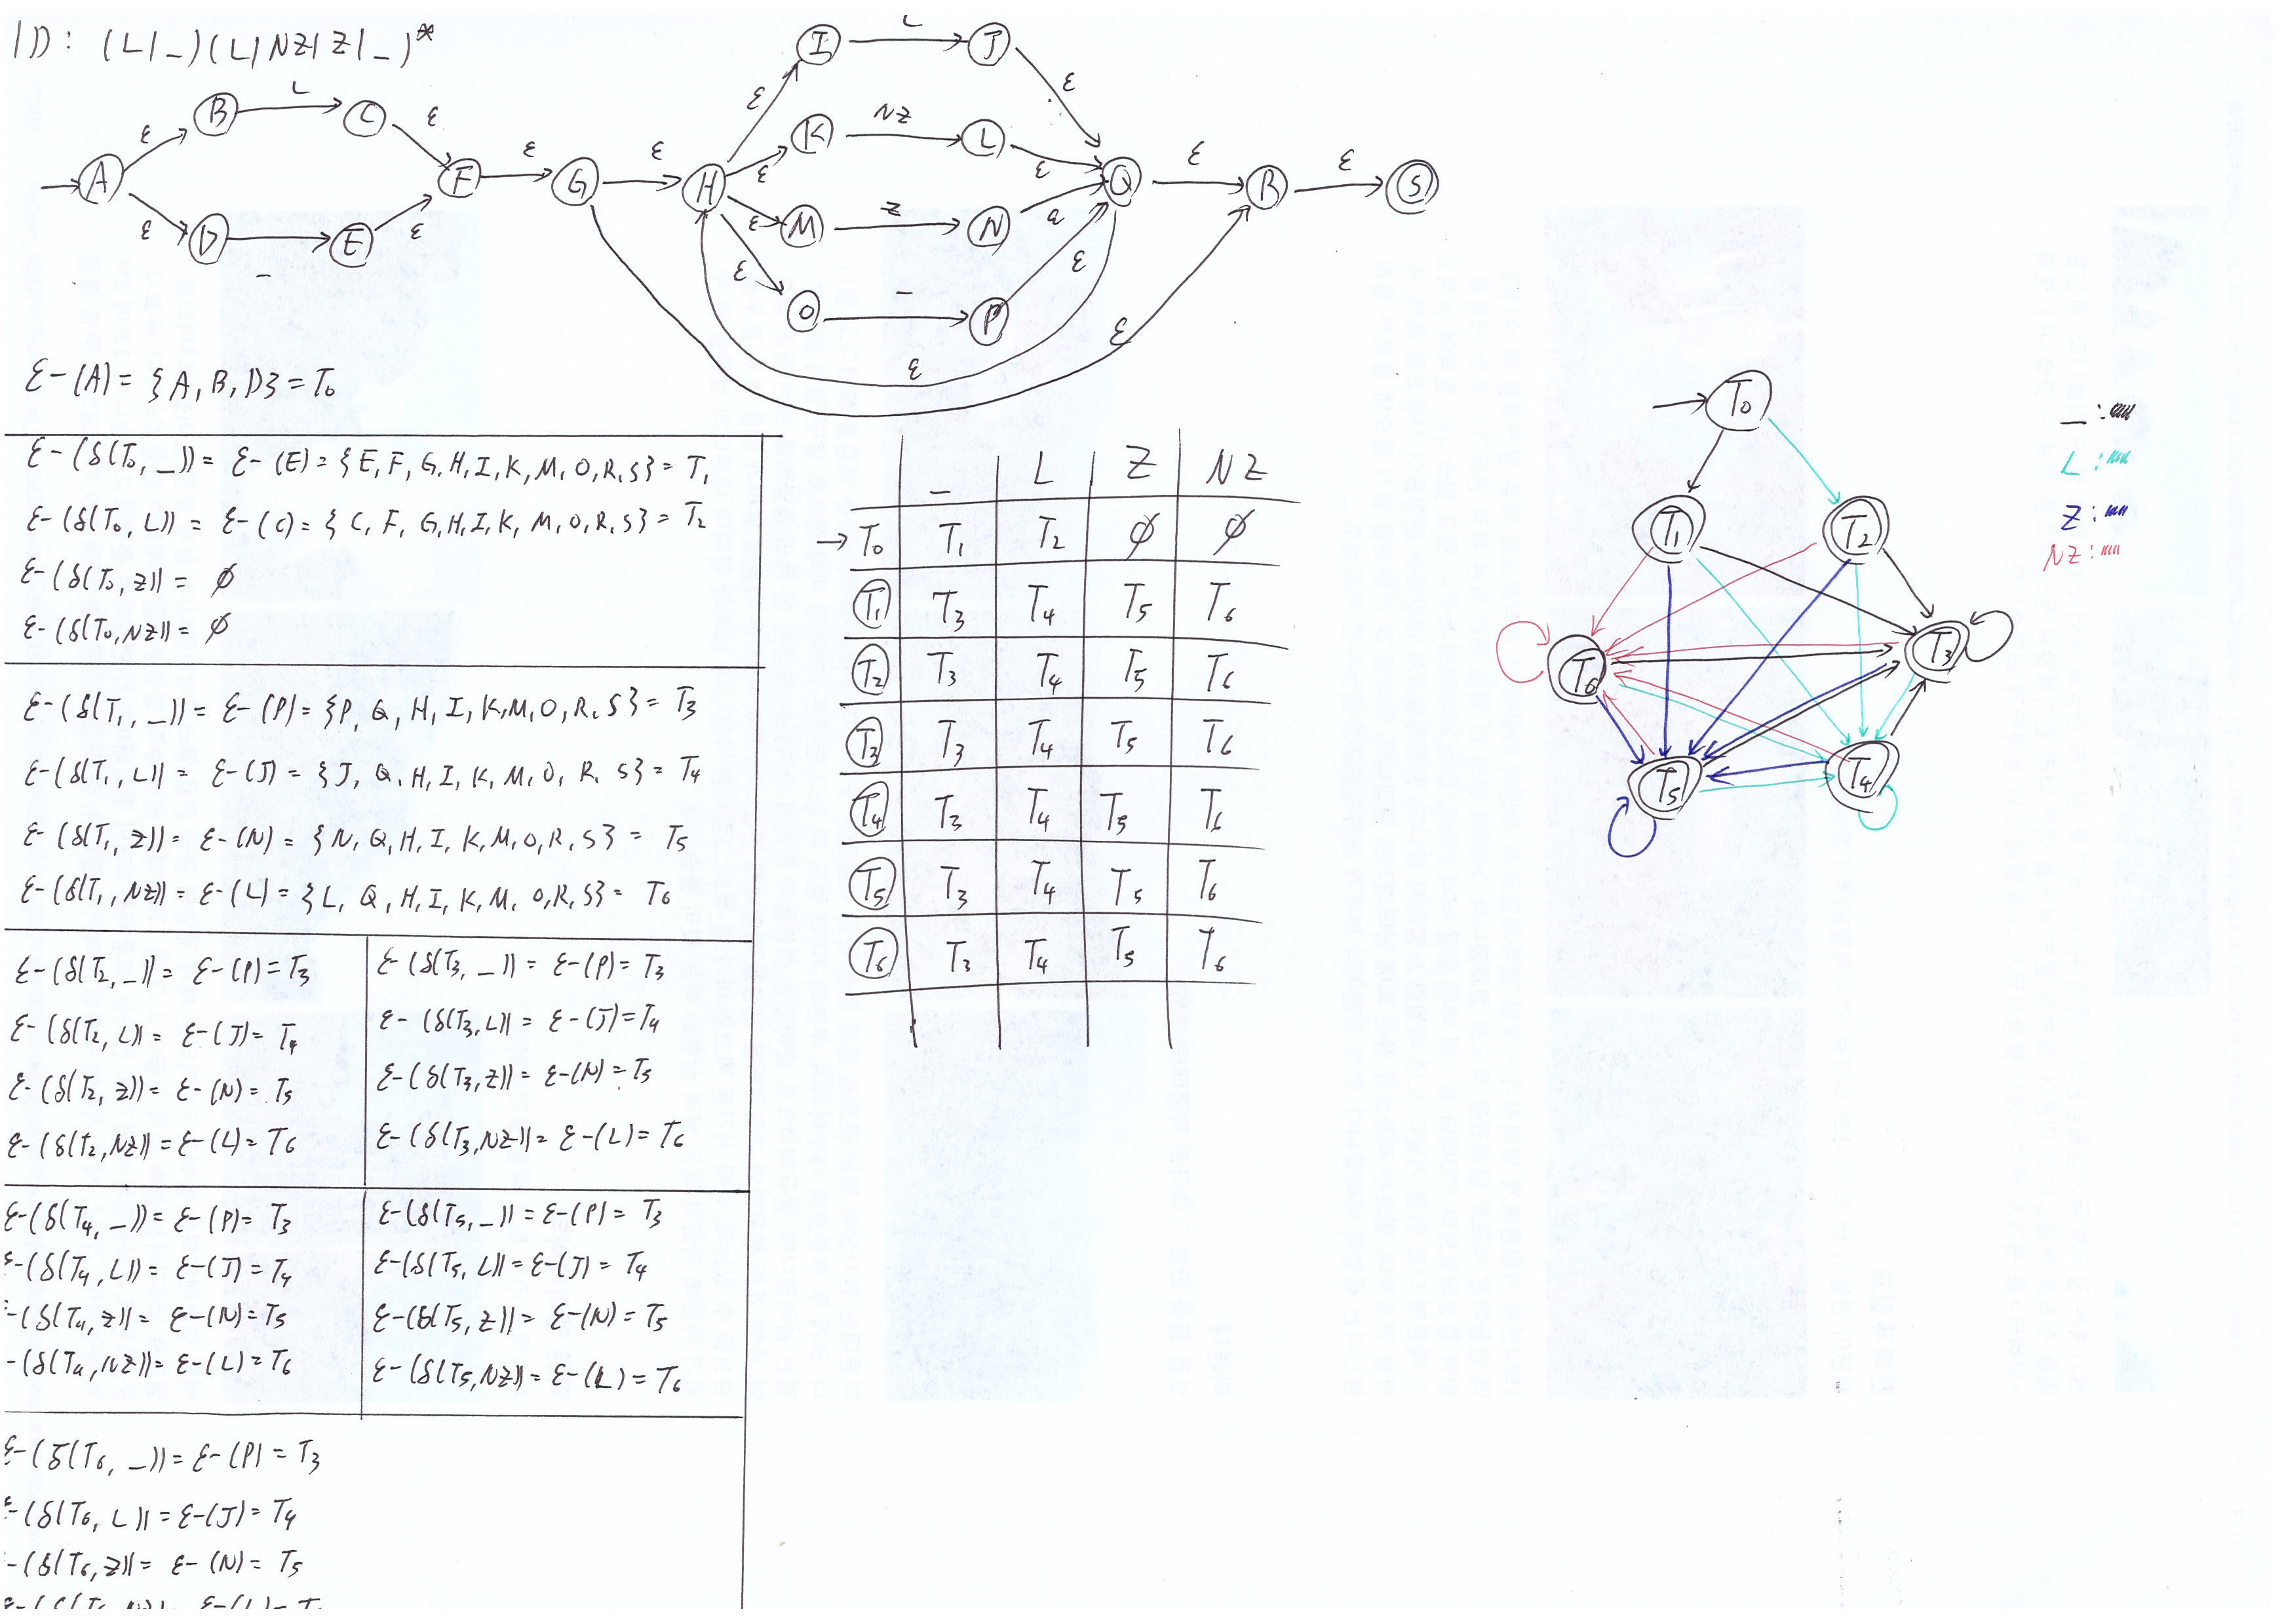 ID: (L|_)(L|NZ|Z|_)*
L
L
I
J
B
C
ε
ε
ε
ε
NZ
K
L
A
F
ε
G
ε
H
ε
ε
Q
ε
R
ε
S
ε
D
E
ε
ε
M
Z
N
ε
_
ε
O
_
P
ε
ε
ε
ε-(A) = {A, B, D} = T0
ε-(δ(T0, _)) = ε-(E) = {E, F, G, H, I, K, M, O, R, S} = T1
ε-(δ(T0, L)) = ε-(C) = {C, F, G, H, I, K, M, O, R, S} = T2
ε-(δ(T0, Z)) = ∅
ε-(δ(T0, NZ)) = ∅
ε-(δ(T1, _)) = ε-(P) = {P, Q, H, I, K, M, O, R, S} = T3
ε-(δ(T1, L)) = ε-(J) = {J, Q, H, I, K, M, O, R, S} = T4
ε-(δ(T1, Z)) = ε-(N) = {N, Q, H, I, K, M, O, R, S} = T5
ε-(δ(T1, NZ)) = ε-(L) = {L, Q, H, I, K, M, O, R, S} = T6
ε-(δ(T2, _)) = ε-(P) = T3
ε-(δ(T2, L)) = ε-(J) = T4
ε-(δ(T2, Z)) = ε-(N) = T5
ε-(δ(T2, NZ)) = ε-(L) = T6
ε-(δ(T3, _)) = ε-(P) = T3
ε-(δ(T3, L)) = ε-(J) = T4
ε-(δ(T3, Z)) = ε-(N) = T5
ε-(δ(T3, NZ)) = ε-(L) = T6
ε-(δ(T4, _)) = ε-(P) = T3
ε-(δ(T4, L)) = ε-(J) = T4
-(δ(T4, Z)) = ε-(N) = T5
-(δ(T4, NZ)) = ε-(L) = T6
ε-(δ(T5, _)) = ε-(P) = T3
ε-(δ(T5, L)) = ε-(J) = T4
ε-(δ(T5, Z)) = ε-(N) = T5
ε-(δ(T5, NZ)) = ε-(L) = T6
ε-(δ(T6, _)) = ε-(P) = T3
ε-(δ(T6, L)) = ε-(J) = T4
-(δ(T6, Z)) = ε-(N) = T5
_ L Z NZ
→T0 T1 T2 ∅ ∅
T1 T3 T4 T5 T6
T2 T3 T4 T5 T6
T3 T3 T4 T5 T6
T4 T3 T4 T5 T6
T5 T3 T4 T5 T6
T6 T3 T4 T5 T6
T0
T1
T2
T6
T3
T5
T4
_ :
L :
Z :
NZ :